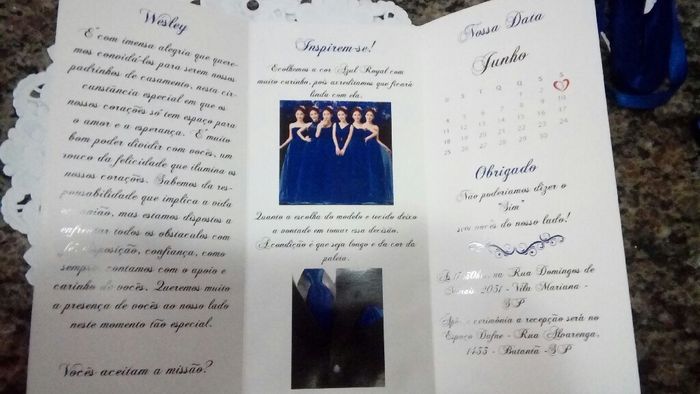 Wesley
É com imensa alegria que quere-
mos convidá-los para serem nossos
padrinhos de casamento, nesta cir-
cunstância especial em que os
nossos corações só tem espaço para
o amor e a esperança. É muito
bom poder dividir com vocês, um
pouco da felicidade que ilumina os
nossos corações. Sabemos da res-
ponsabilidade que implica a vida
mas estamos dispostos a
enfrentar todos os obstáculos com
disposição, confiança, como
sempre, contamos com o apoio e
carinho de vocês. Queremos muito
a presença de vocês ao nosso lado
neste momento tão especial.
Vocês aceitam a missão?
Inspirem-se!
Escolhemos a cor Azul Royal com
muito carinho, pois acreditamos que ficará
linda com ela.
Quanto a escolha do modelo e tecido deixo
a vontade em tomar essa decisão.
A condição é que seja longo e da cor da
paleta.
Nossa Data
Junho
D S T Q Q S S
4 5 6 7 8 9 10
11 12 13 14 15 16 17
18 19 20 21 22 23 24
25
Obrigado
Não poderíamos dizer o
"Sim"
sem vocês do nosso lado!
na Rua Domingos de
2051 - Vila Mariana -
SP
cerimônia a recepção será no
Espaço Dafne - Rua Alvarenga,
1433 - Butantã - SP